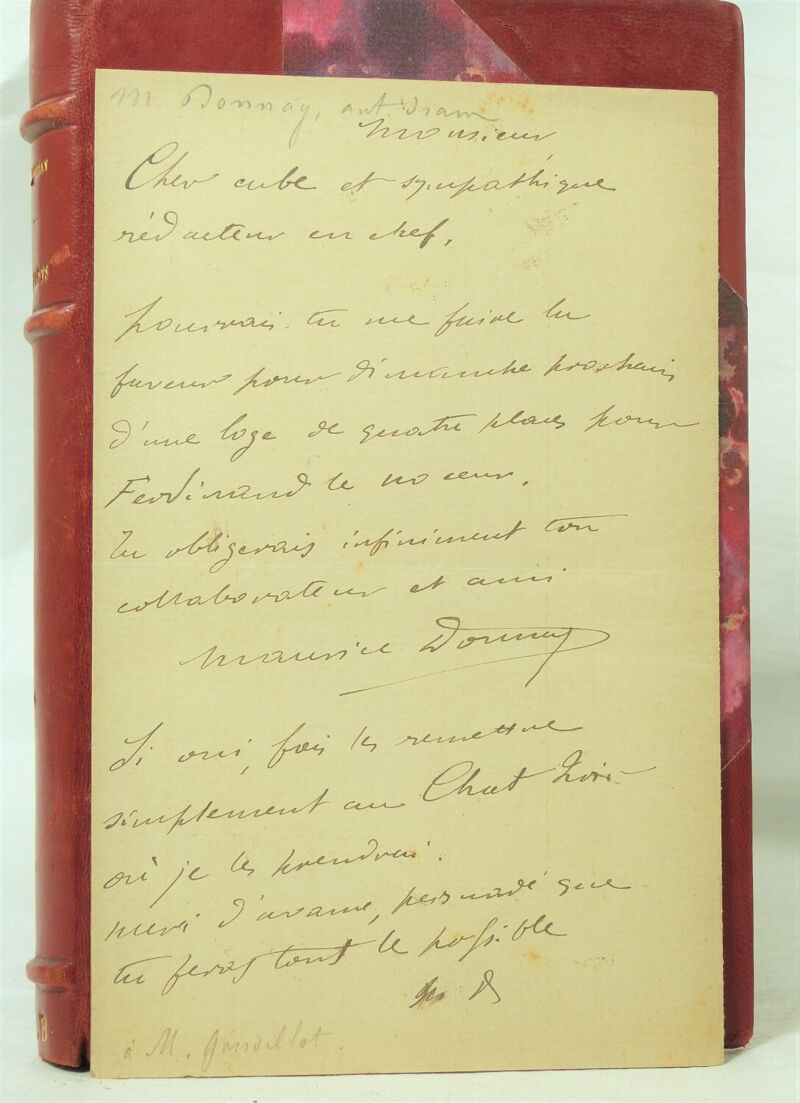 M. Donnay, aut. dram
Monsieur,
Cher cube et sympathique
rédacteur en chef,
pourrais-tu me faire la
faveur pour dimanche prochain
d'une loge de quatre places pour
Ferdinand le noceur.
Tu obligerais infiniment ton
collaborateur et ami
Maurice Donnay
Si oui, fais les remettre
simplement au Chat Noir
où je les prendrai.
merci d'avance, persuadé que
tu feras tout le possible
M D
à M. Gandillot